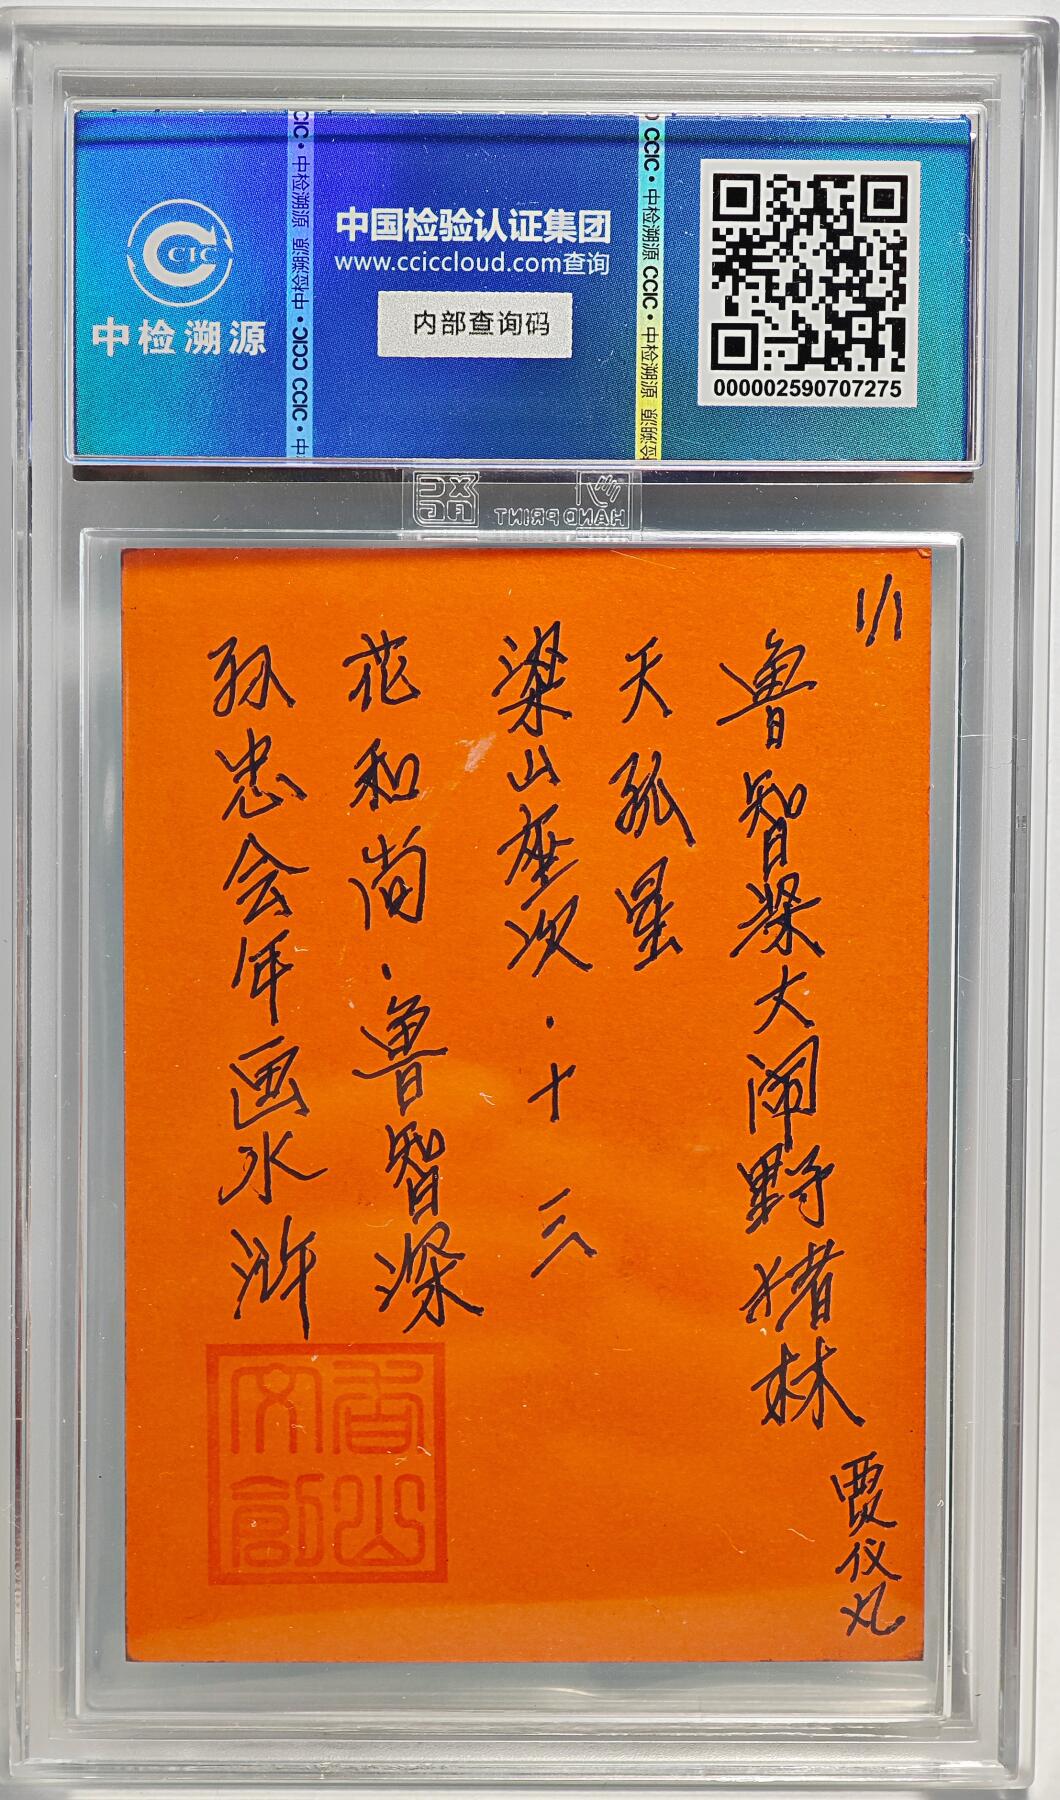 CIC
中检溯源
CIC • 中检溯源 CCIC • 中
中国检验认证集团
www.cciccloud.com查询
内部查询码
CCIC • 中检溯源 CCIC • 中检溯源
000002590707275
HAND PRINT
1/1
鲁智深大闹野猪林
天孤星
梁山座次·十三
花和尚·鲁智深
孙忠会年画水浒
贾仪
香山
文创